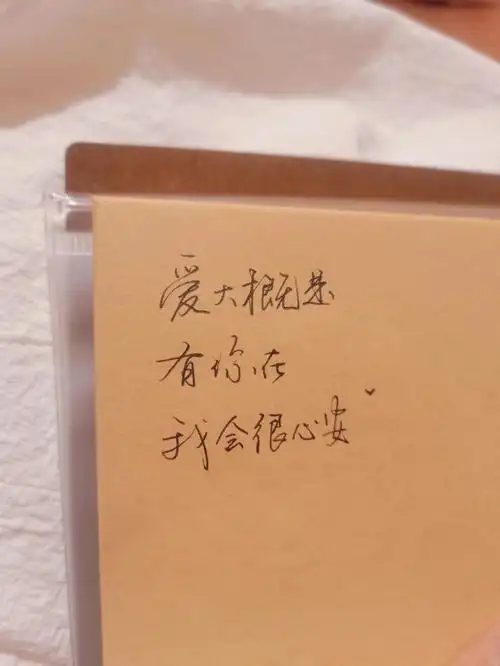 爱大概是
有你在
我会很心安